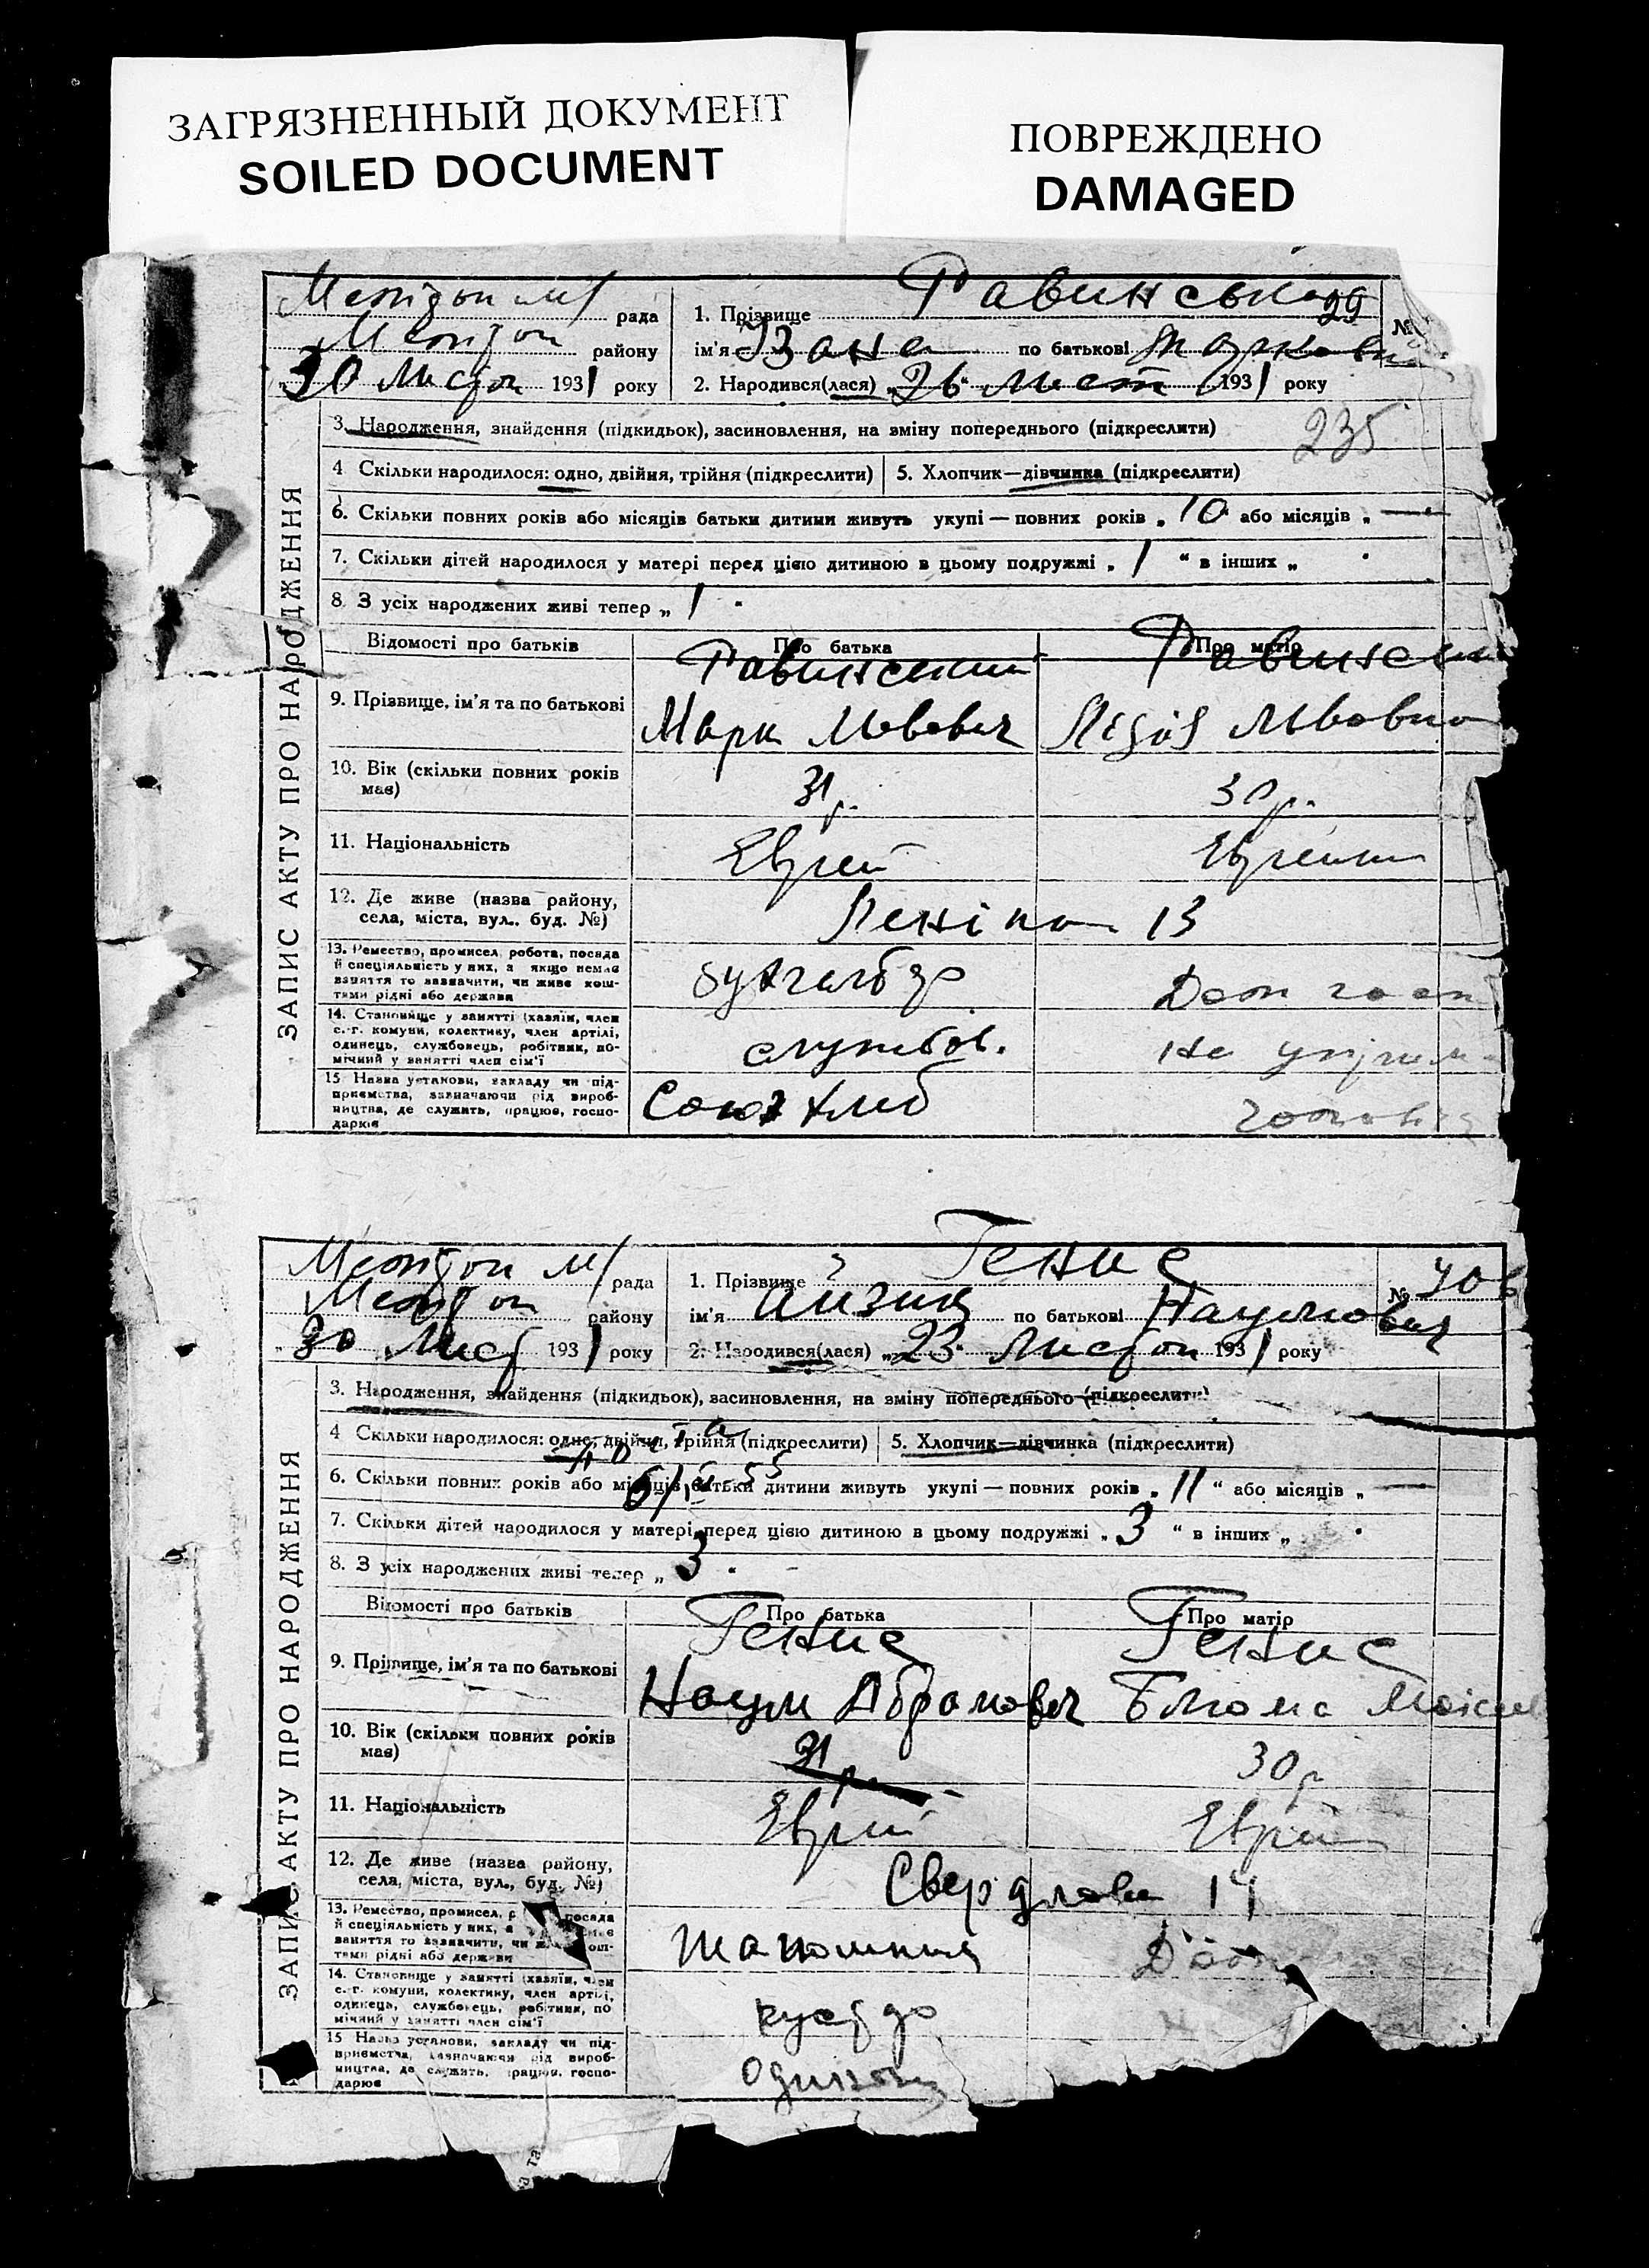 ЗАГРЯЗНЕННЫЙ ДОКУМЕНТ
SOILED DOCUMENT
ПОВРЕЖДЕНО
DAMAGED
ЗАПИС АКТУ ПРО НАРОДЖЕННЯ
рада
району
30 Листоп 1931 року
1. Прізвище Равинська 29
№
ім'я по батькові Марковна
2. Народився(лася) „26“ Лист 1931 року
3. Народження, знайдення (підкидьок), засиновлення, на зміну попереднього (підкреслити)
235
4 Скільки народилося: одно, двійня, трійня (підкреслити)
5. Хлопчик—дівчинка (підкреслити)
6. Скільки повних років або місяців батьки дитини живуть укупі — повних років „10“ або місяців „—
7. Скільки дітей народилося у матері перед цією дитиною в цьому подружжі „1“ в інших „
8. З усіх народжених живі тепер „1
Відомості про батьків
Про батька
Про матір
9. Прізвище, ім'я та по батькові
Равинський
Марк Львович
Лідія Львовна
10. Вік (скільки повних років має)
31 р.
30 р.
11. Національність
Єврей
Єврейка
12. Де живе (назва району, села, міста, вул., буд. №)
Леніна 13
13. Ремество, промисел, робота, посада
й спеціяльність у них, а якщо немає
заняття то зазначити, чи живе кош-
тами рідні або держави
бухгалтер
Дом госп
14. Становище у занятті (хазяїн, член
с.-г. комуни, колективу, член артілі,
одинець, службовець, робітник, по-
мічний у занятті член сім'ї
службов.
На утрим
15 Назва установи, закладу чи під-
приємства, зазначаючи рід вироб-
ництва, де служить, працює, госпо-
дарює
Союзхліб
чоловіка
ЗАПИС АКТУ ПРО НАРОДЖЕННЯ
рада
району
30 Лист 1931 року
1. Прізвище Генис
№
ім'я Айзик по батькові Наумович
2. Народився(лася) „23“ Листоп 1931 року
3. Народження, знайдення (підкидьок), засиновлення, на зміну попереднього (підкреслити)
4 Скільки народилося: одно, двійня, трійня (підкреслити)
5. Хлопчик—дівчинка (підкреслити)
6. Скільки повних років або місяців батьки дитини живуть укупі — повних років „11“ або місяців „—
7. Скільки дітей народилося у матері перед цією дитиною в цьому подружжі „3“ в інших „
8. З усіх народжених живі тепер „3
Відомості про батьків
Про батька
Про матір
9. Прізвище, ім'я та по батькові
Генис
Наум Абрамович
Генис
Блюма
10. Вік (скільки повних років має)
31 р.
30 р
11. Національність
Єврей
Єврей
12. Де живе (назва району, села, міста, вул., буд. №)
Свердлова
13. Ремество, промисел, посада
й спеціяльність у них, а
заняття то зазначити, чи
тами рідні або держави
Шапошник
14. Становище у занятті (хазяїн, член
с.-г. комуни, колективу, член артілі,
одинець, службовець, робітник, по
мічний у занятті член сім'ї
кустар
15 Назва установи, закладу чи під-
приємства, зазначаючи рід вироб-
ництва, де служить, працює, госпо-
дарює